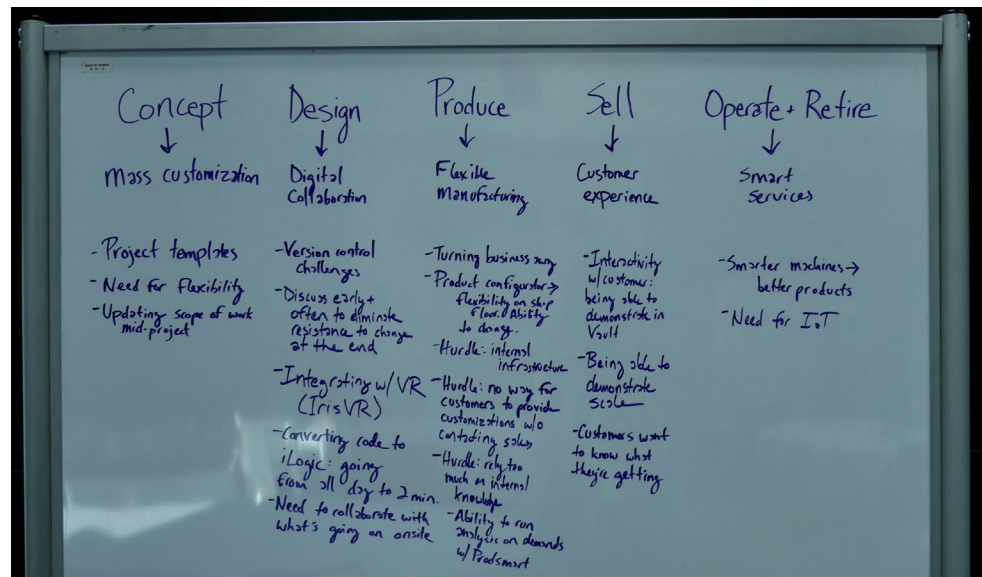 Concept
↓
Mass customization
- Project templates
- Need for flexibility
- Updating scope of work
mid-project
Design
↓
Digital
Collaboration
- Version control
challenges
- Discuss early +
often to eliminate
resistance to change
at the end
- Integrating w/ VR
(IrisVR)
- Converting code to
iLogic: going
from all day to 2 min.
- Need to collaborate with
what's going on onsite
Produce
↓
Flexible
Manufacturing
- Turning business away
- Product configurator →
flexibility on shop
floor. Ability
to change.
- Hurdle: internal
infrastructure
- Hurdle: no way for
customers to provide
customizations w/o
contacting sales
- Hurdle: rely too
much on internal
knowledge
- Ability to run
analysis on demands
w/ Prodsmart
Sell
↓
Customer
experience
- Interactivity
w/customer:
being able to
demonstrate in
Vault
- Being able to
demonstrate
scale
- Customers want
to know what
they're getting
Operate + Retire
↓
Smart
Services
- Smarter machines →
better products
- Need for IoT